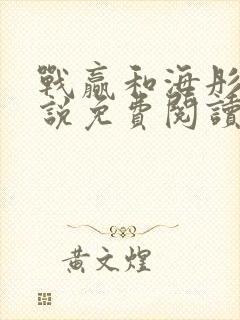 戰贏和海彤
說免費閱讀
黃文煌